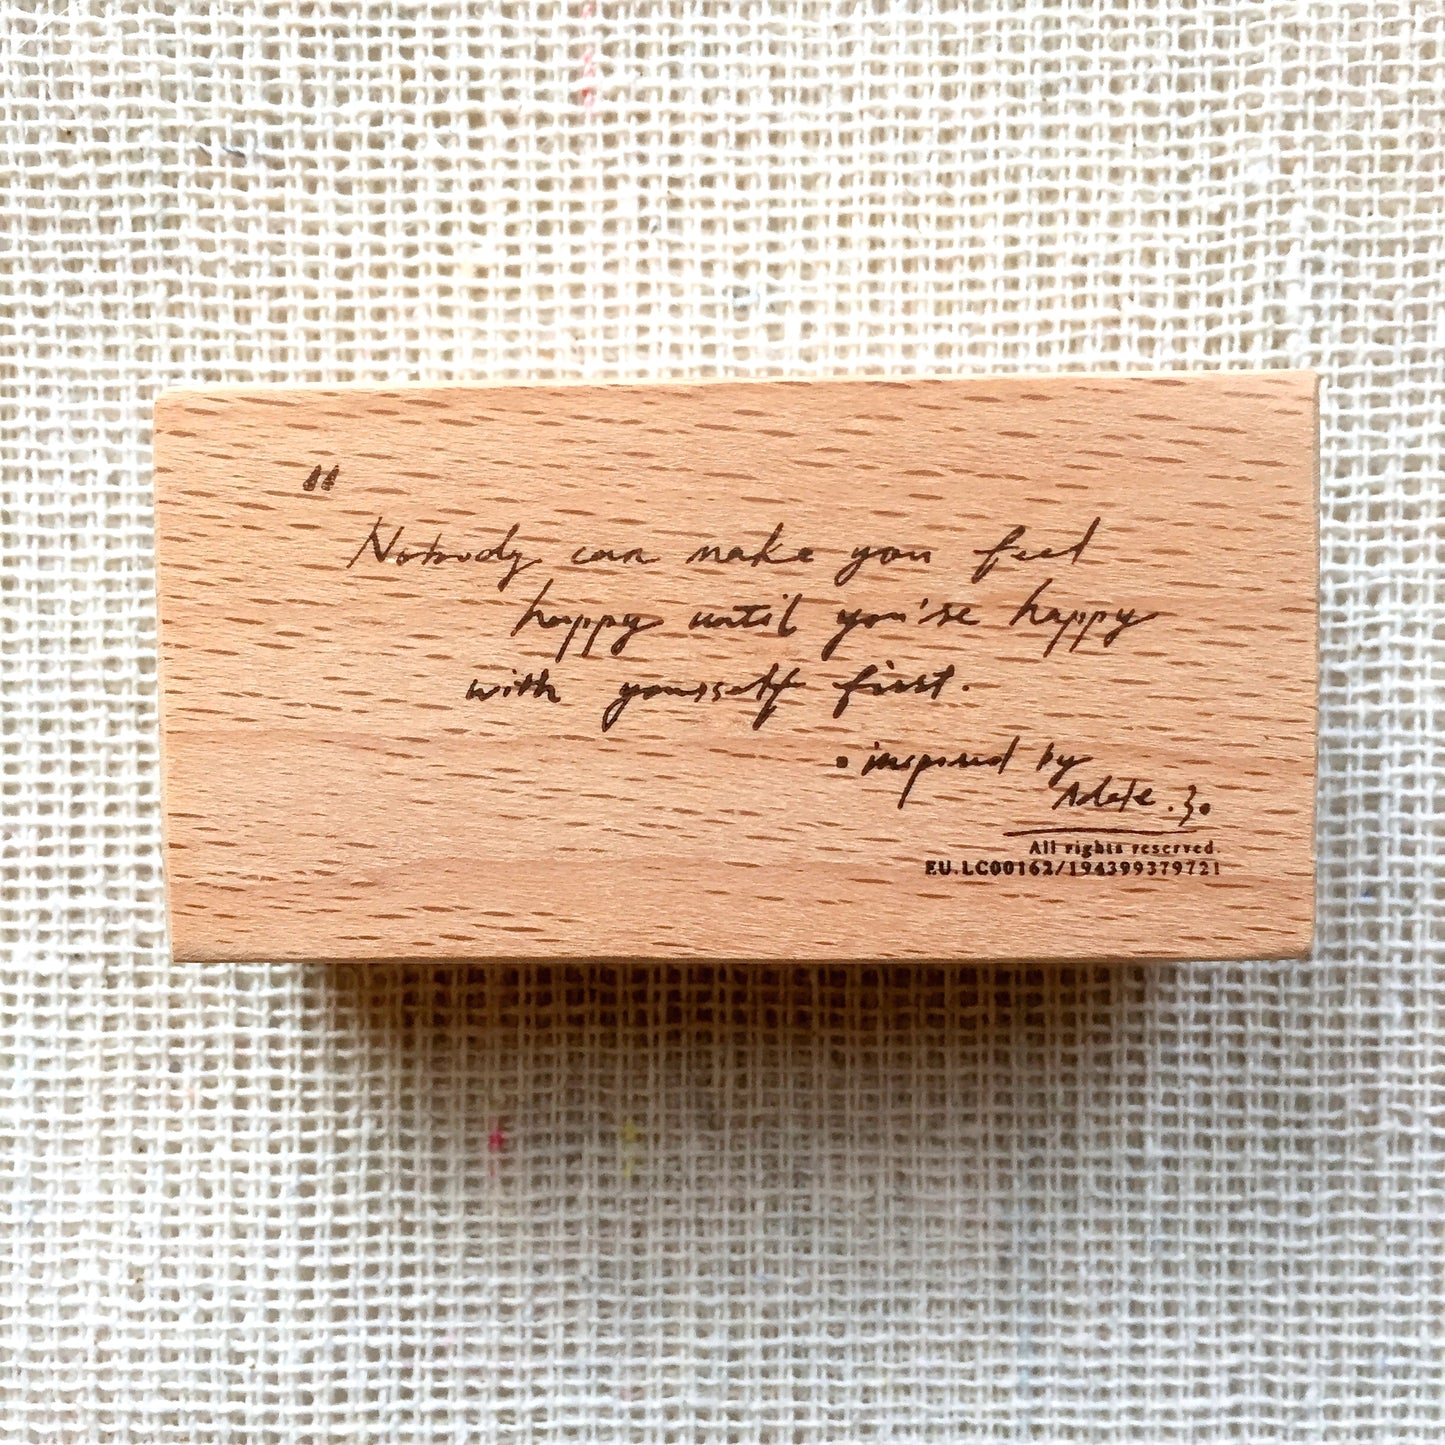 "
Nobody can make you feel
happy until you're happy
with yourself first.
• inspired by
Adele.
All rights reserved.
EU.LC00162/194399379721